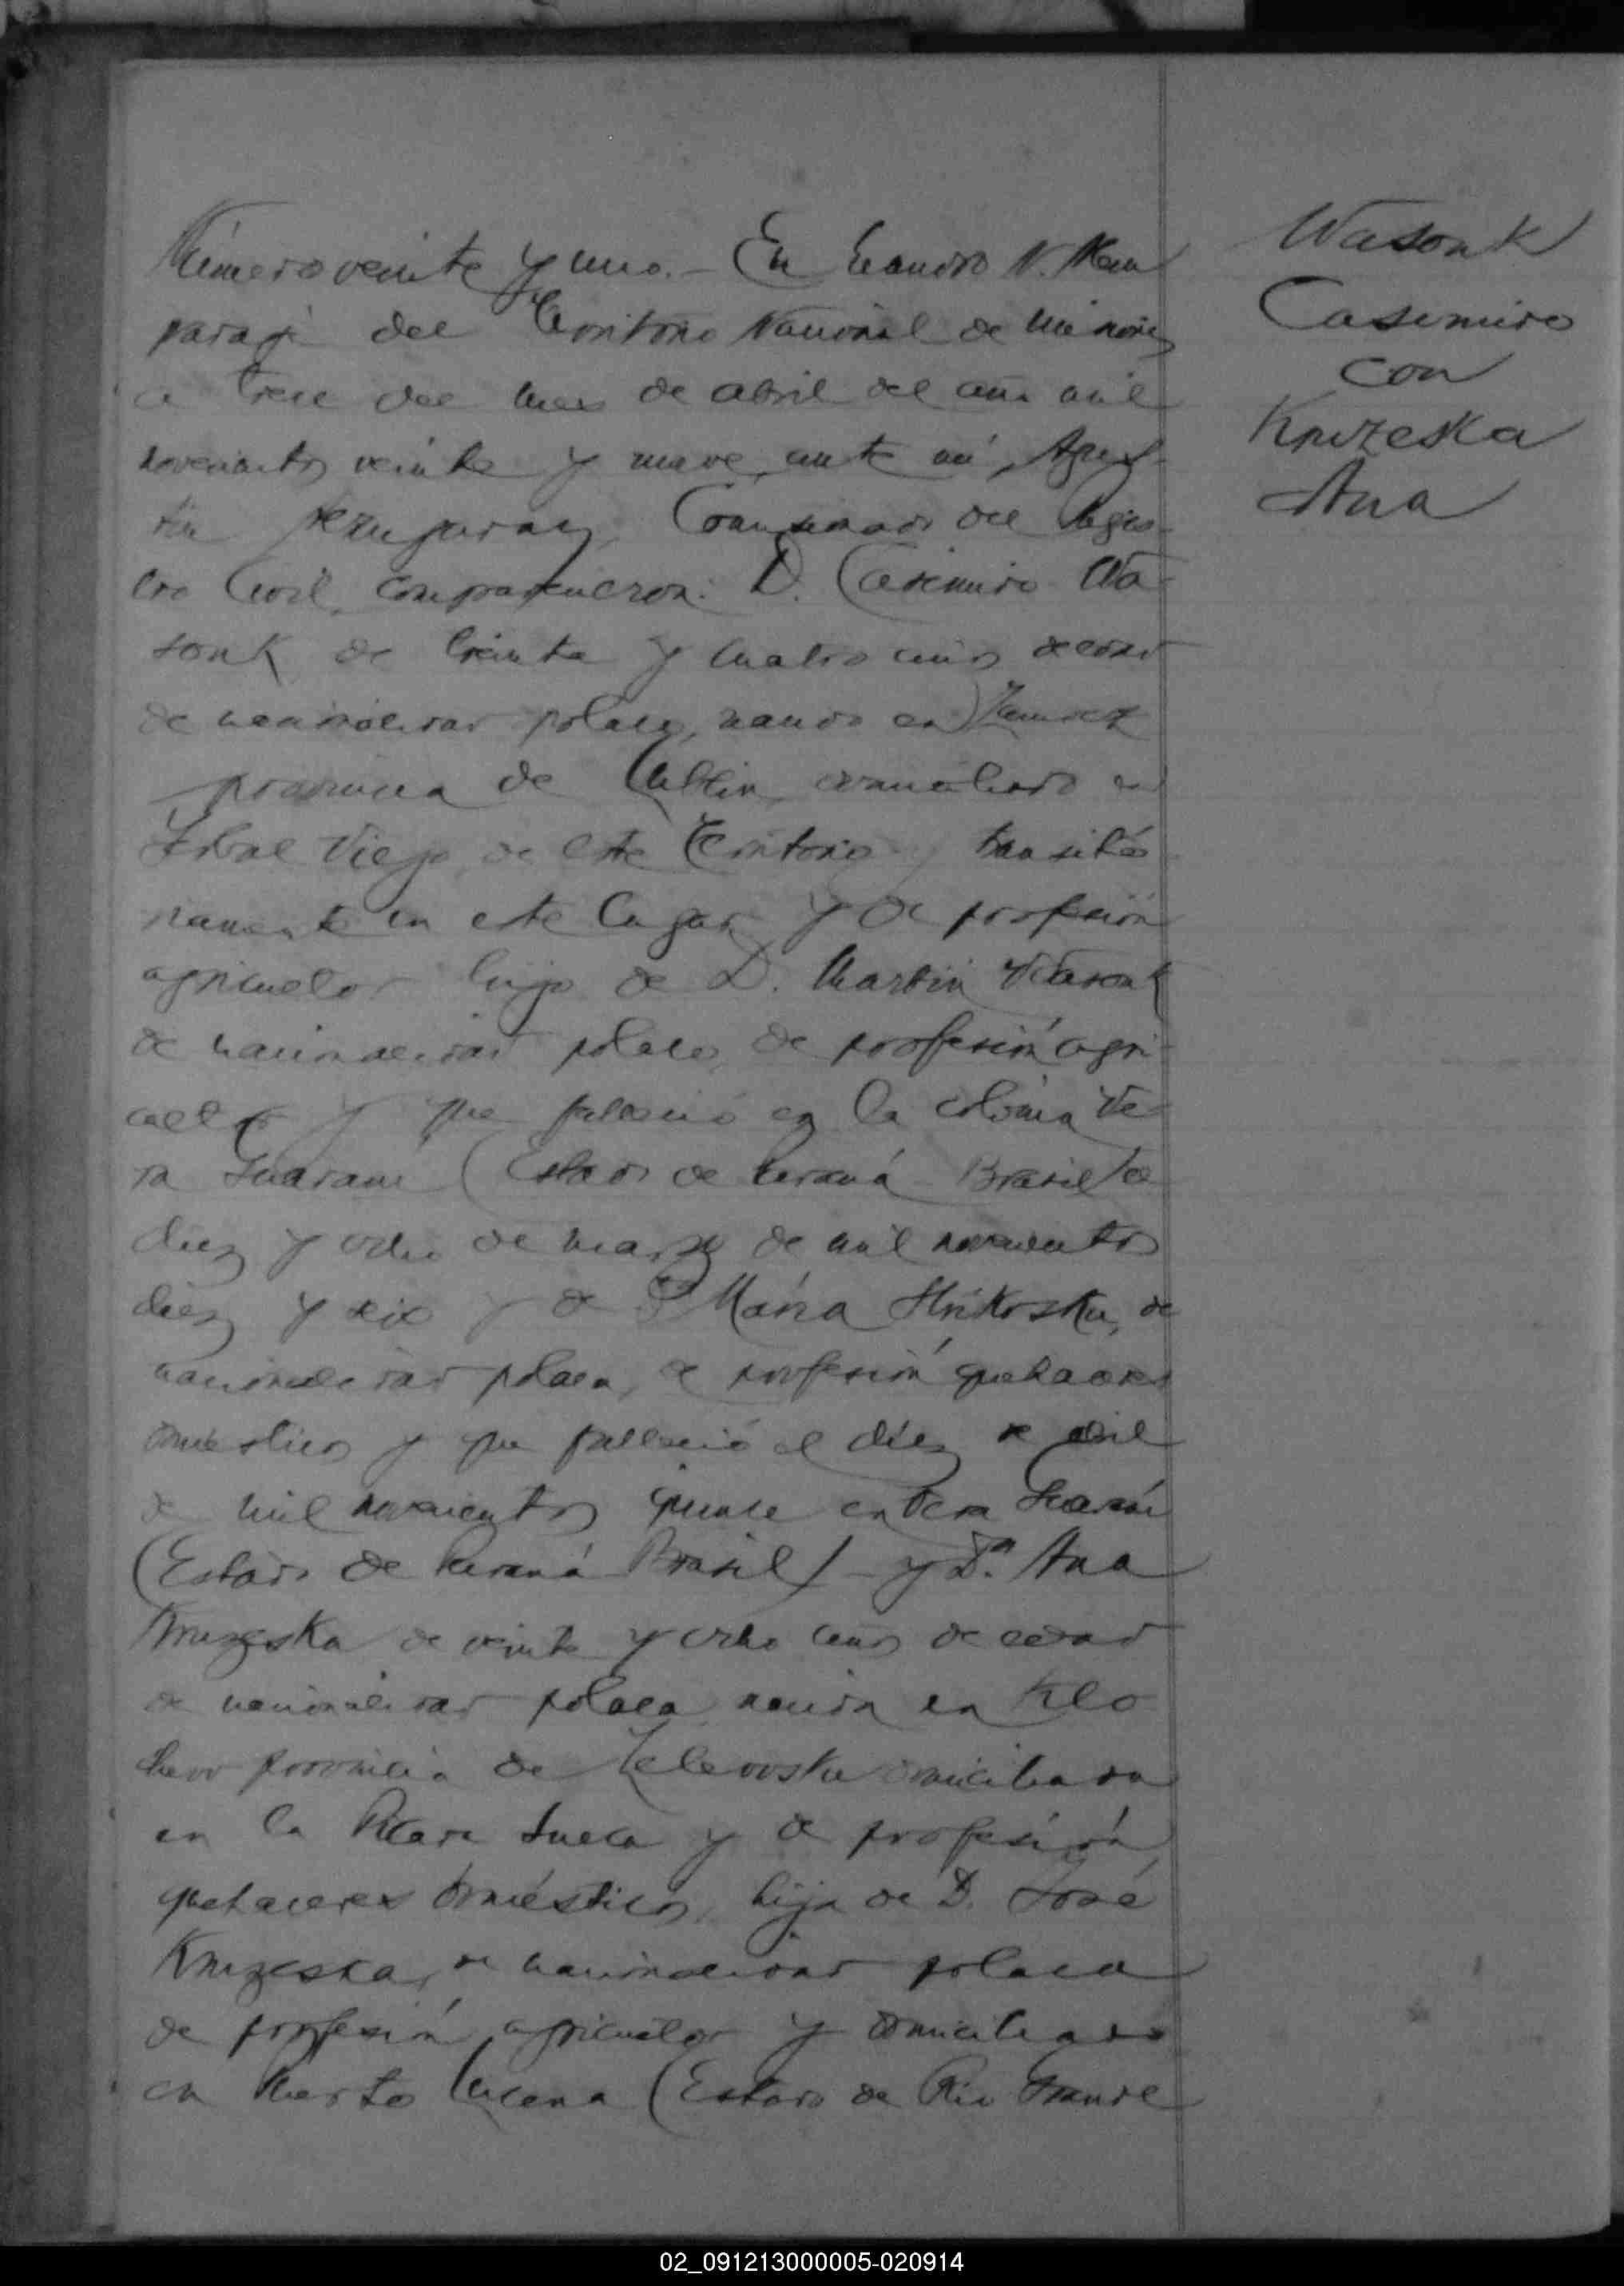 Número veinte y uno.- En Leandro N. Alem
paraje del Territorio Nacional de Misiones
a trece del mes de abril del año mil
novecientos veinte y nueve, ante mí, Agus-
tín Comisionado del Regis-
tro Civil, comparecieron: D. Casemiro Wa-
sonk de treinta y cuatro años de edad
de nacionalidad polaco, nacido en Zamosez
provincia de Lublin, domiciliado en
Yerbal Viejo, de este Territorio y transito-
riamente en este lugar y de profesión
agricultor hijo de D. Martin Wasonk
de nacionalidad polaco, de profesión agri-
cultor y que falleció en la colonia Ve-
ra Guarani (Estado de Paraná - Brasil) el
diez y ocho de marzo de mil novecientos
diez y seis y de Dª María Hrikoska, de
nacionalidad polaca, de profesión quehaceres
domésticos y que falleció el diez de abril
de mil novecientos quince en Vera Guaraní
(Estado de Paraná Brasil) - y Dª. Ana
Knuzeska de veinte y ocho años de edad
de nacionalidad polaca nacida en Klo
provincia de domiciliada
en la Picada Sueca y de profesión
quehaceres domésticos, hija de D. José
Knuzeska, de nacionalidad polaca
de profesión agricultor y domiciliado
en Puerto Lucena (Estado de Rio Grande
Wasonk
Casemiro
con
Knuzeska
Ana
02_091213000005-020914